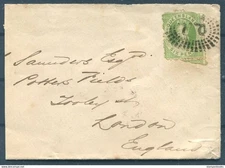 Saunders Esqr
Potters Fields
Tooley St
London
England